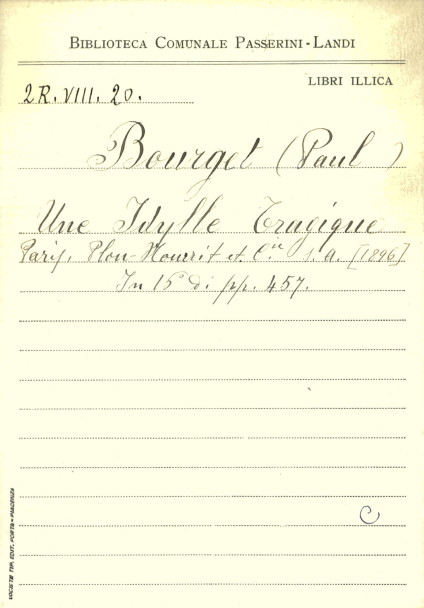 BIBLIOTECA COMUNALE PASSERINI-LANDI
LIBRI ILLICA
2R.VIII.20.
Bourget (Paul)
Une Idylle Tragique
Paris, Plon-Nourrit et C.ie s.a. [1896]
In 15° di pp. 457.
C
SOCIETÀ TIP. EDIT. PORTA - PIACENZA